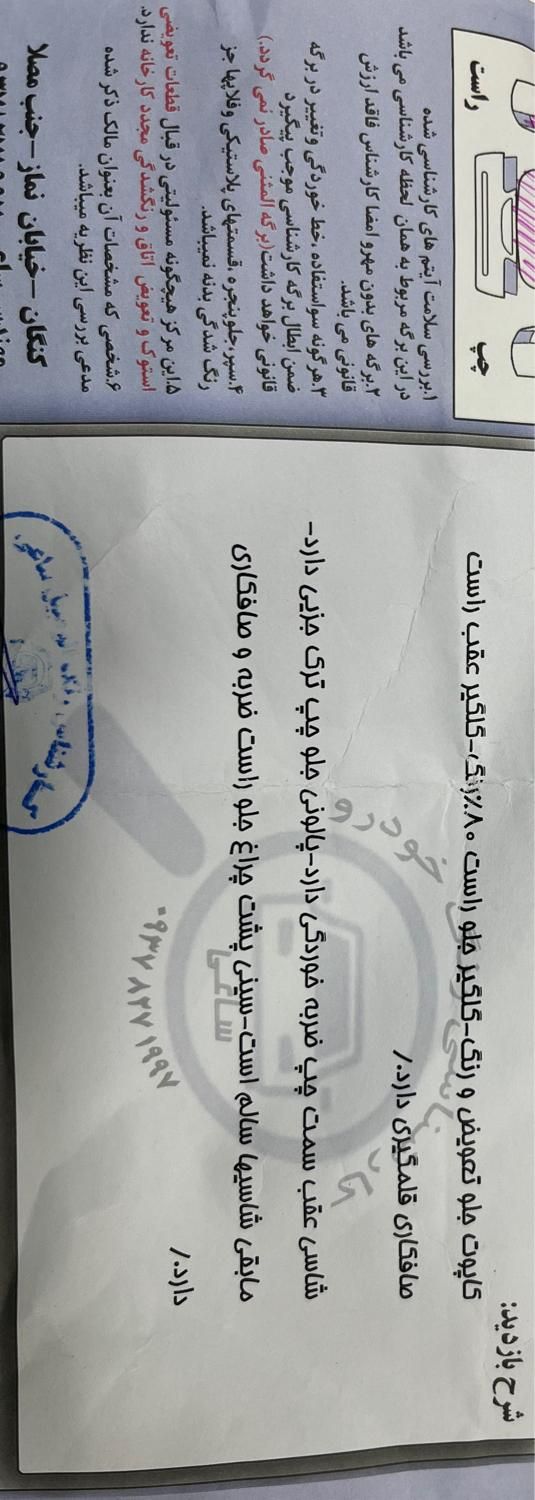 شرح بازدید:
کاپوت جلو تعویض و رنگ-گلگیر جلو راست ۸۰٪رنگ-گلگیر عقب راست
صافکاری قلمگیری دارد./
شاسی عقب سمت چپ ضربه خوردگی دارد-پالونی جلو چپ ترک جزیی دارد-
مابقی شاسیها سالم است-سینی پشت چراغ جلو راست ضربه و صافکاری
دارد./
خودرو
ساعی
۰۹۳۷۸۲۷۱۹۹۷
راست
چپ
۱.بررسی سلامت آیتم های کارشناسی شده
در این برگه مربوط به همان لحظه کارشناسی می باشد
۲.برگه های بدون مهر و امضا کارشناس فاقد ارزش
قانونی می باشد.
۳.هرگونه سواستفاده ،خط خوردگی و تغییر در برگه
ضمن ابطال برگه کارشناسی موجب پیگیرد
قانونی خواهد داشت(برگه المثنی صادر نمی گردد.)
۴.سپر،جلوپنجره ،قسمتهای پلاستیکی وفلاپها جز
رنگ شدگی بدنه نمیباشد.
۵.این مرکز هیچگونه مسئولیتی در قبال قطعات تعویضی
استوک و تعویض اتاق و رنگشدگی مجدد کارخانه ندارد.
۶.شخصی که مشخصات آن بعنوان مالک ذکر شده
مدعی بررسی این نظریه میباشد.
کنگان -خیابان نماز -جنب مصلا